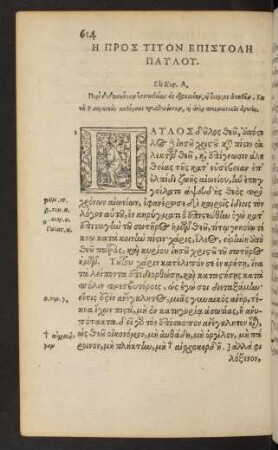 614
Η ΠΡΟΣ ΤΙΤΟΝ ΕΠΙΣΤΟΛΗ
ΠΑΥΛΟΥ.
Κεφ. Α.
ΠΑΥΛΟΣ δοῦλος θεοῦ, ἀπόστο
λος ἰησοῦ χριστοῦ κατὰ πίστιν ἐκ
λεκτῶν θεοῦ, καὶ ἐπίγνωσιν ἀλη
θείας τῆς κατ' εὐσέβειαν ἐπ'
ἐλπίδι ζωῆς αἰωνίου, ἣν ἐπηγ
γείλατο ὁ ἀψευδὴς θεὸς πρὸ
χρόνων αἰωνίων, ἐφανέρωσε δὲ καιροῖς ἰδίοις τὸν
λόγον αὐτοῦ, ἐν κηρύγματι ὃ ἐπιστεύθην ἐγὼ κατ'
ἐπιταγὴν τοῦ σωτῆρος ἡμῶν θεοῦ, τίτῳ γνησίῳ τέ
κνῳ κατὰ κοινὴν πίστιν χάρις, ἔλεος, εἰρήνη ἀπὸ
θεοῦ πατρὸς, καὶ κυρίου ἰησοῦ χριστοῦ τοῦ σωτῆρος
ἡμῶν. Τούτου χάριν κατέλιπόν σε ἐν κρήτῃ, ἵνα
τὰ λείποντα ἐπιδιορθώσῃ, καὶ καταστήσῃς κατὰ
πόλιν πρεσβυτέρους, ὡς ἐγώ σοι διεταξάμην
εἴ τις ἐστὶν ἀνέγκλητος, μιᾶς γυναικὸς ἀνὴρ, τέκ
να ἔχων πιστὰ, μὴ ἐν κατηγορίᾳ ἀσωτίας, ἢ ἀνυ
πότακτα. δεῖ γὰρ τὸν ἐπίσκοπον ἀνέγκλητον εἶναι,
ὡς θεοῦ οἰκονόμον, μὴ αὐθάδη, μὴ ὀργίλον, μὴ πά
ροινον, μὴ πλήκτην, μὴ αἰσχροκερδῆ ἀλλὰ φι
λόξενον,